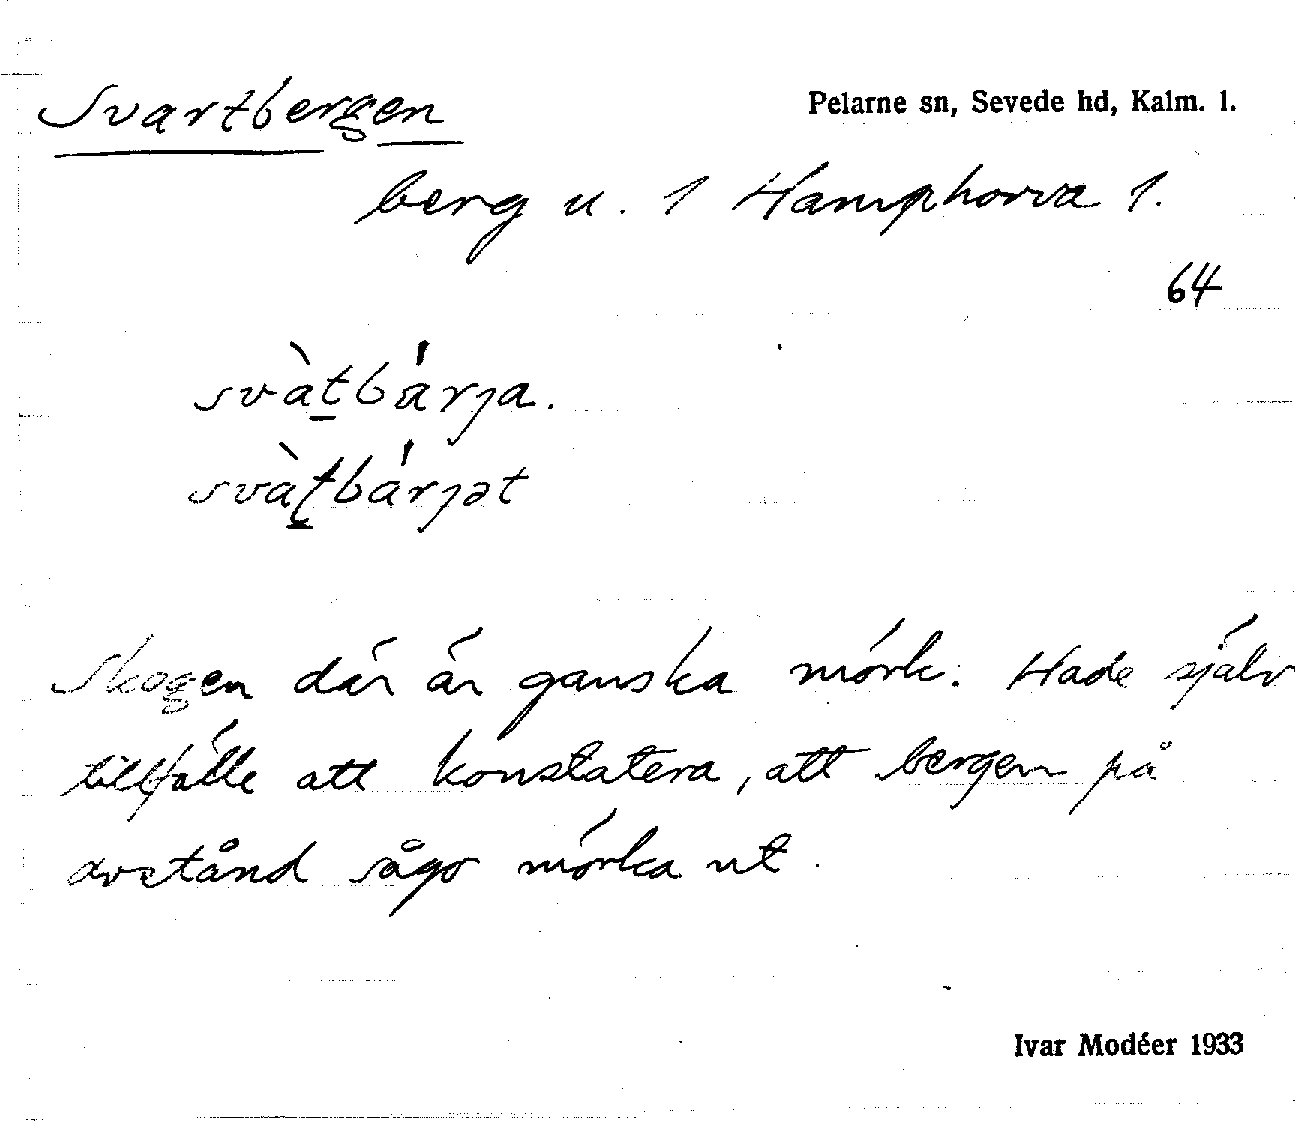 Svartbergen
Pelarne sn, Sevede hd, Kalm. l.
berg u. 1 Hamphorva 1.
64
svàtbárja.
svàtbárjət
Skogen där är ganska mörk. Hade själv
tillfälle att konstatera, att bergen på
avstånd sågo mörka ut.
Ivar Modéer 1933